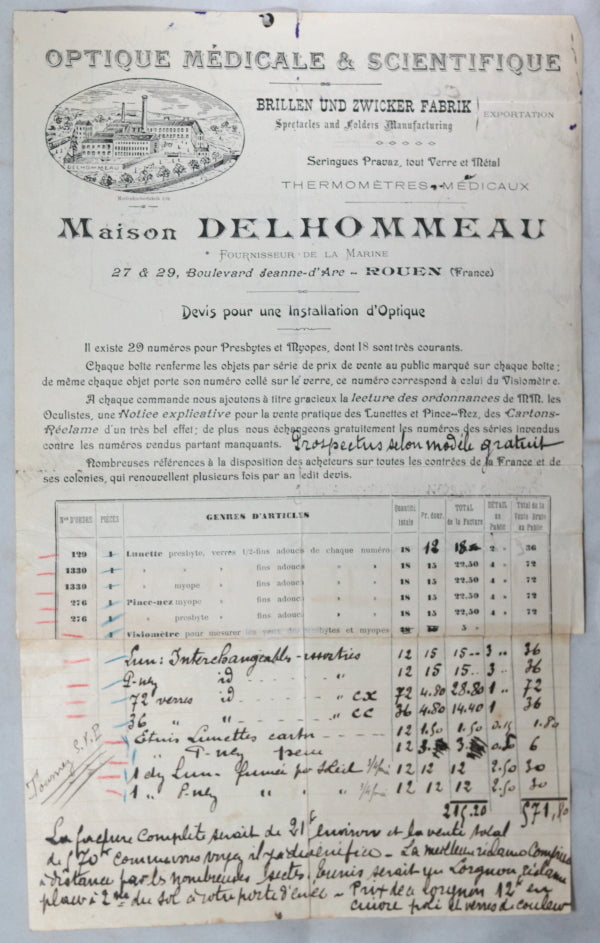 OPTIQUE MÉDICALE & SCIENTIFIQUE
BRILLEN UND ZWICKER FABRIK
Spectacles and Folders Manufacturing
EXPORTATION
DELHOMMEAU
Seringues Pravaz, tout Verre et Métal
THERMOMÈTRES MÉDICAUX
Maison DELHOMMEAU
FOURNISSEUR DE LA MARINE
27 & 29, Boulevard Jeanne-d'Arc – ROUEN (France)
Devis pour une Installation d'Optique
Il existe 29 numéros pour Presbytes et Myopes, dont 18 sont très courants.
Chaque boîte renferme les objets par série de prix de vente au public marqué sur chaque boîte;
de même chaque objet porte son numéro collé sur le verre, ce numéro correspond à celui du Visiomètre.
A chaque commande nous ajoutons à titre gracieux la lecture des ordonnances de MM. les
Oculistes, une Notice explicative pour la vente pratique des Lunettes et Pince-Nez, des Cartons-
Réclame d'un très bel effet; de plus nous échangeons gratuitement les numéros des séries invendus
contre les numéros vendus partant manquants. Prospectus selon modèle gratuit
Nombreuses références à la disposition des acheteurs sur toutes les contrées de la France et de
ses colonies, qui renouvellent plusieurs fois par an ledit devis.
Nos D'ORDRE PIÈCES GENRES D'ARTICLES Quantité totale Pr. douz. TOTAL de la Facture DÉTAIL au Public Total de la Vente Brute au Public
129 1 Lunette presbyte, verres 1/2-fins adoucis de chaque numéro 18 12 18 2 » 36
1330 1 » » » fins adoucis » » 18 15 22,50 4 » 72
1339 1 » myope » fins adoucis » » 18 15 22,50 4 » 72
276 1 Pince-nez myope » fins adoucis » » 18 15 22,50 4 » 72
276 1 » presbyte » fins adoucis » » 18 15 22,50 4 » 72
1 Visiomètre pour mesurer les yeux des presbytes et myopes 5 »
Lun: Interchangeables assorties 12 15 15 .. 3 » 36
P-nez id " 12 15 15 .. 3 » 36
72 verres id " CX 72 4.80 28.80 1 " 72
36 " " " CC 36 4.80 14.40 1 " 36
Etuis Lunettes carton 12 1.50 1.50 0.15 1.80
" P-nez peau 12 6
1 dz Lun- fumée pr Soleil 12 12 12 2.50 30
1 " P-nez " " " 12 12 12 2.50 30
Tournez S.V.P
215.20 571,80
La facture complète serait de 215f environ et la vente total
de 570 comme vous voyez il y a du bénéfice – La meilleure réclame
à distance par les nombreuses serait un Lorgnon réclame
placé à 2 m du sol à votre porte d'entrée – Prix de ce Lorgnon 12f en
cuivre poli et verres de couleur